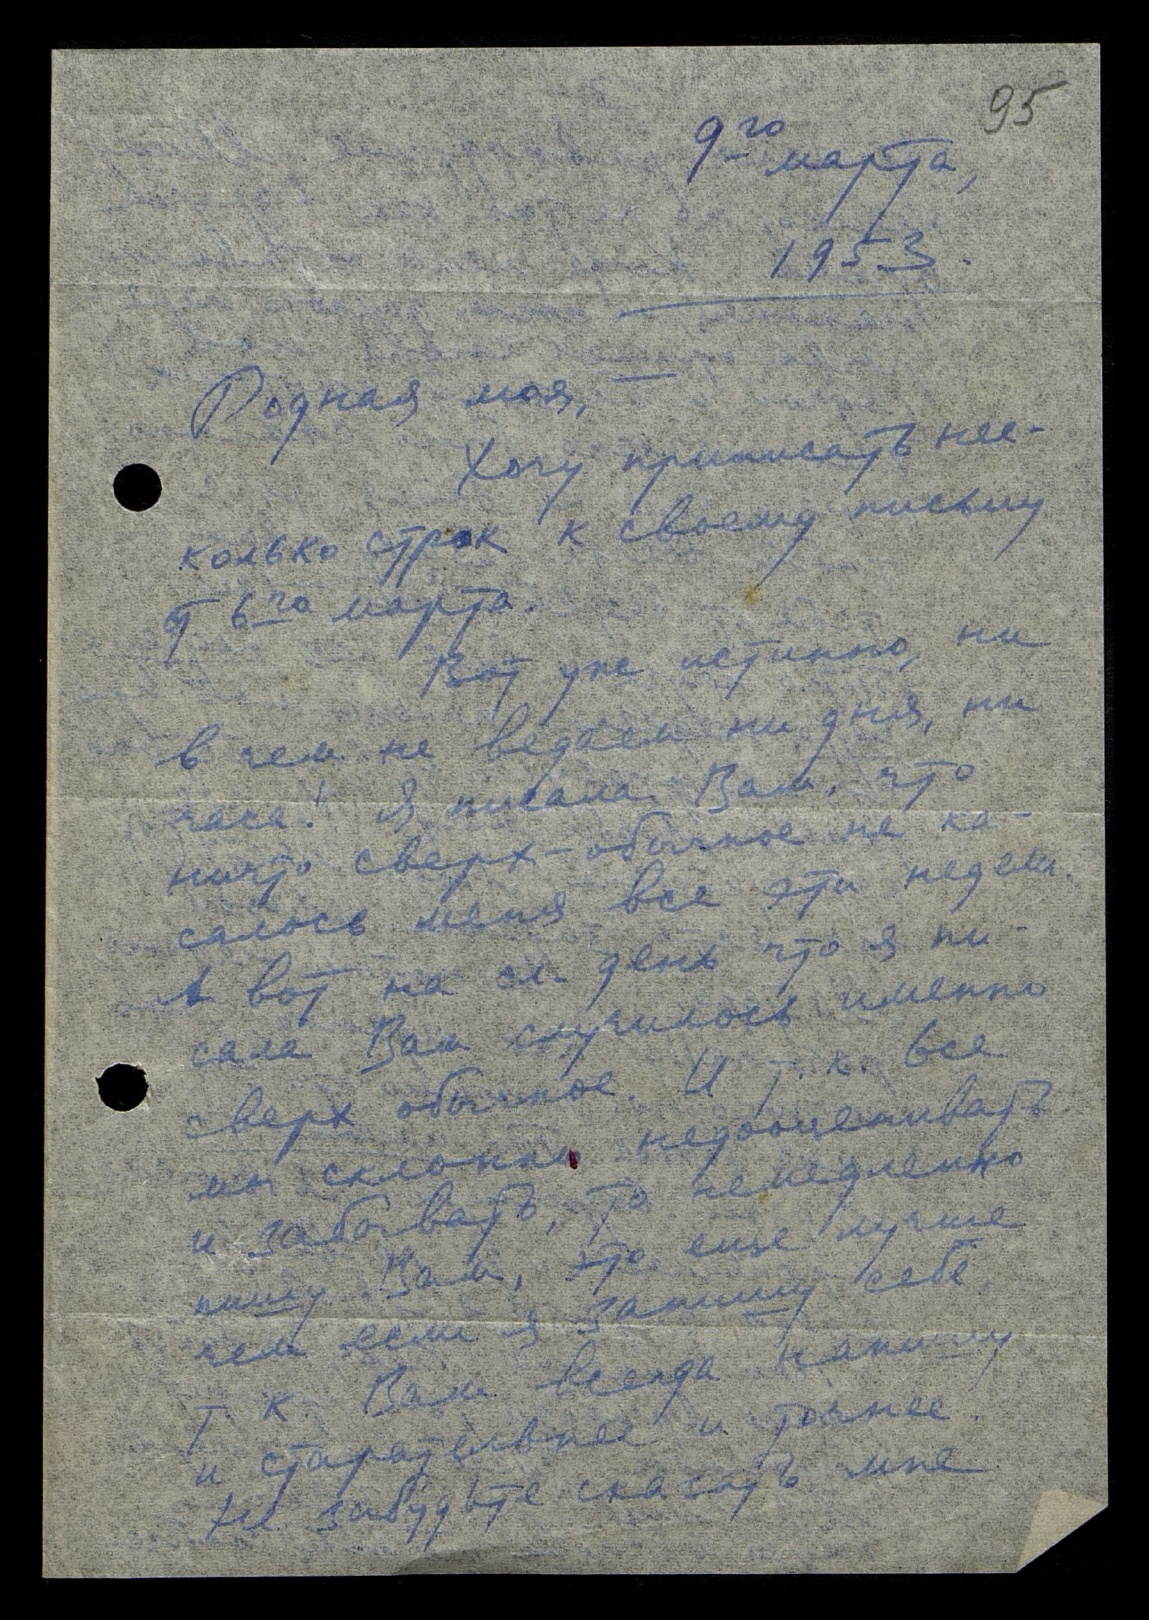 95
9-го марта,
1953.
Родная моя,
Хочу приписать нес-
колько строк к своему письму
от 6го марта.
Вот уже истинно, ни
в чем не ведаем ни дня, ни
часа! Я писала Вам, что
ничто сверх-обычное не ка-
салось меня все эти недели.
А вот на сл. день что я пи-
сала Вам случилось именно
сверх обычное. И т.к. все
мы склонны недооценивать
и забывать, то немедленно
пишу Вам, это еще лучше
чем если я запишу себе
т.к. Вам всегда напишу
и старательнее и точнее.
Не забудьте сказать мне